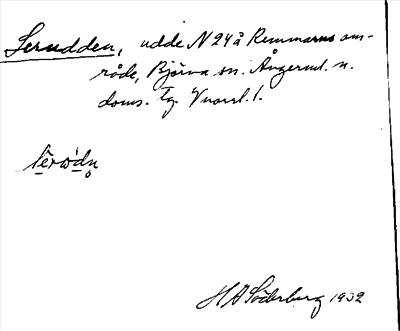 Lerudden, udde N 24 å Remmarns om-
råde, Björna sn. Ångerml. n.
doms. Tg. Vuorsl. 1.
H A Söderberg 1932